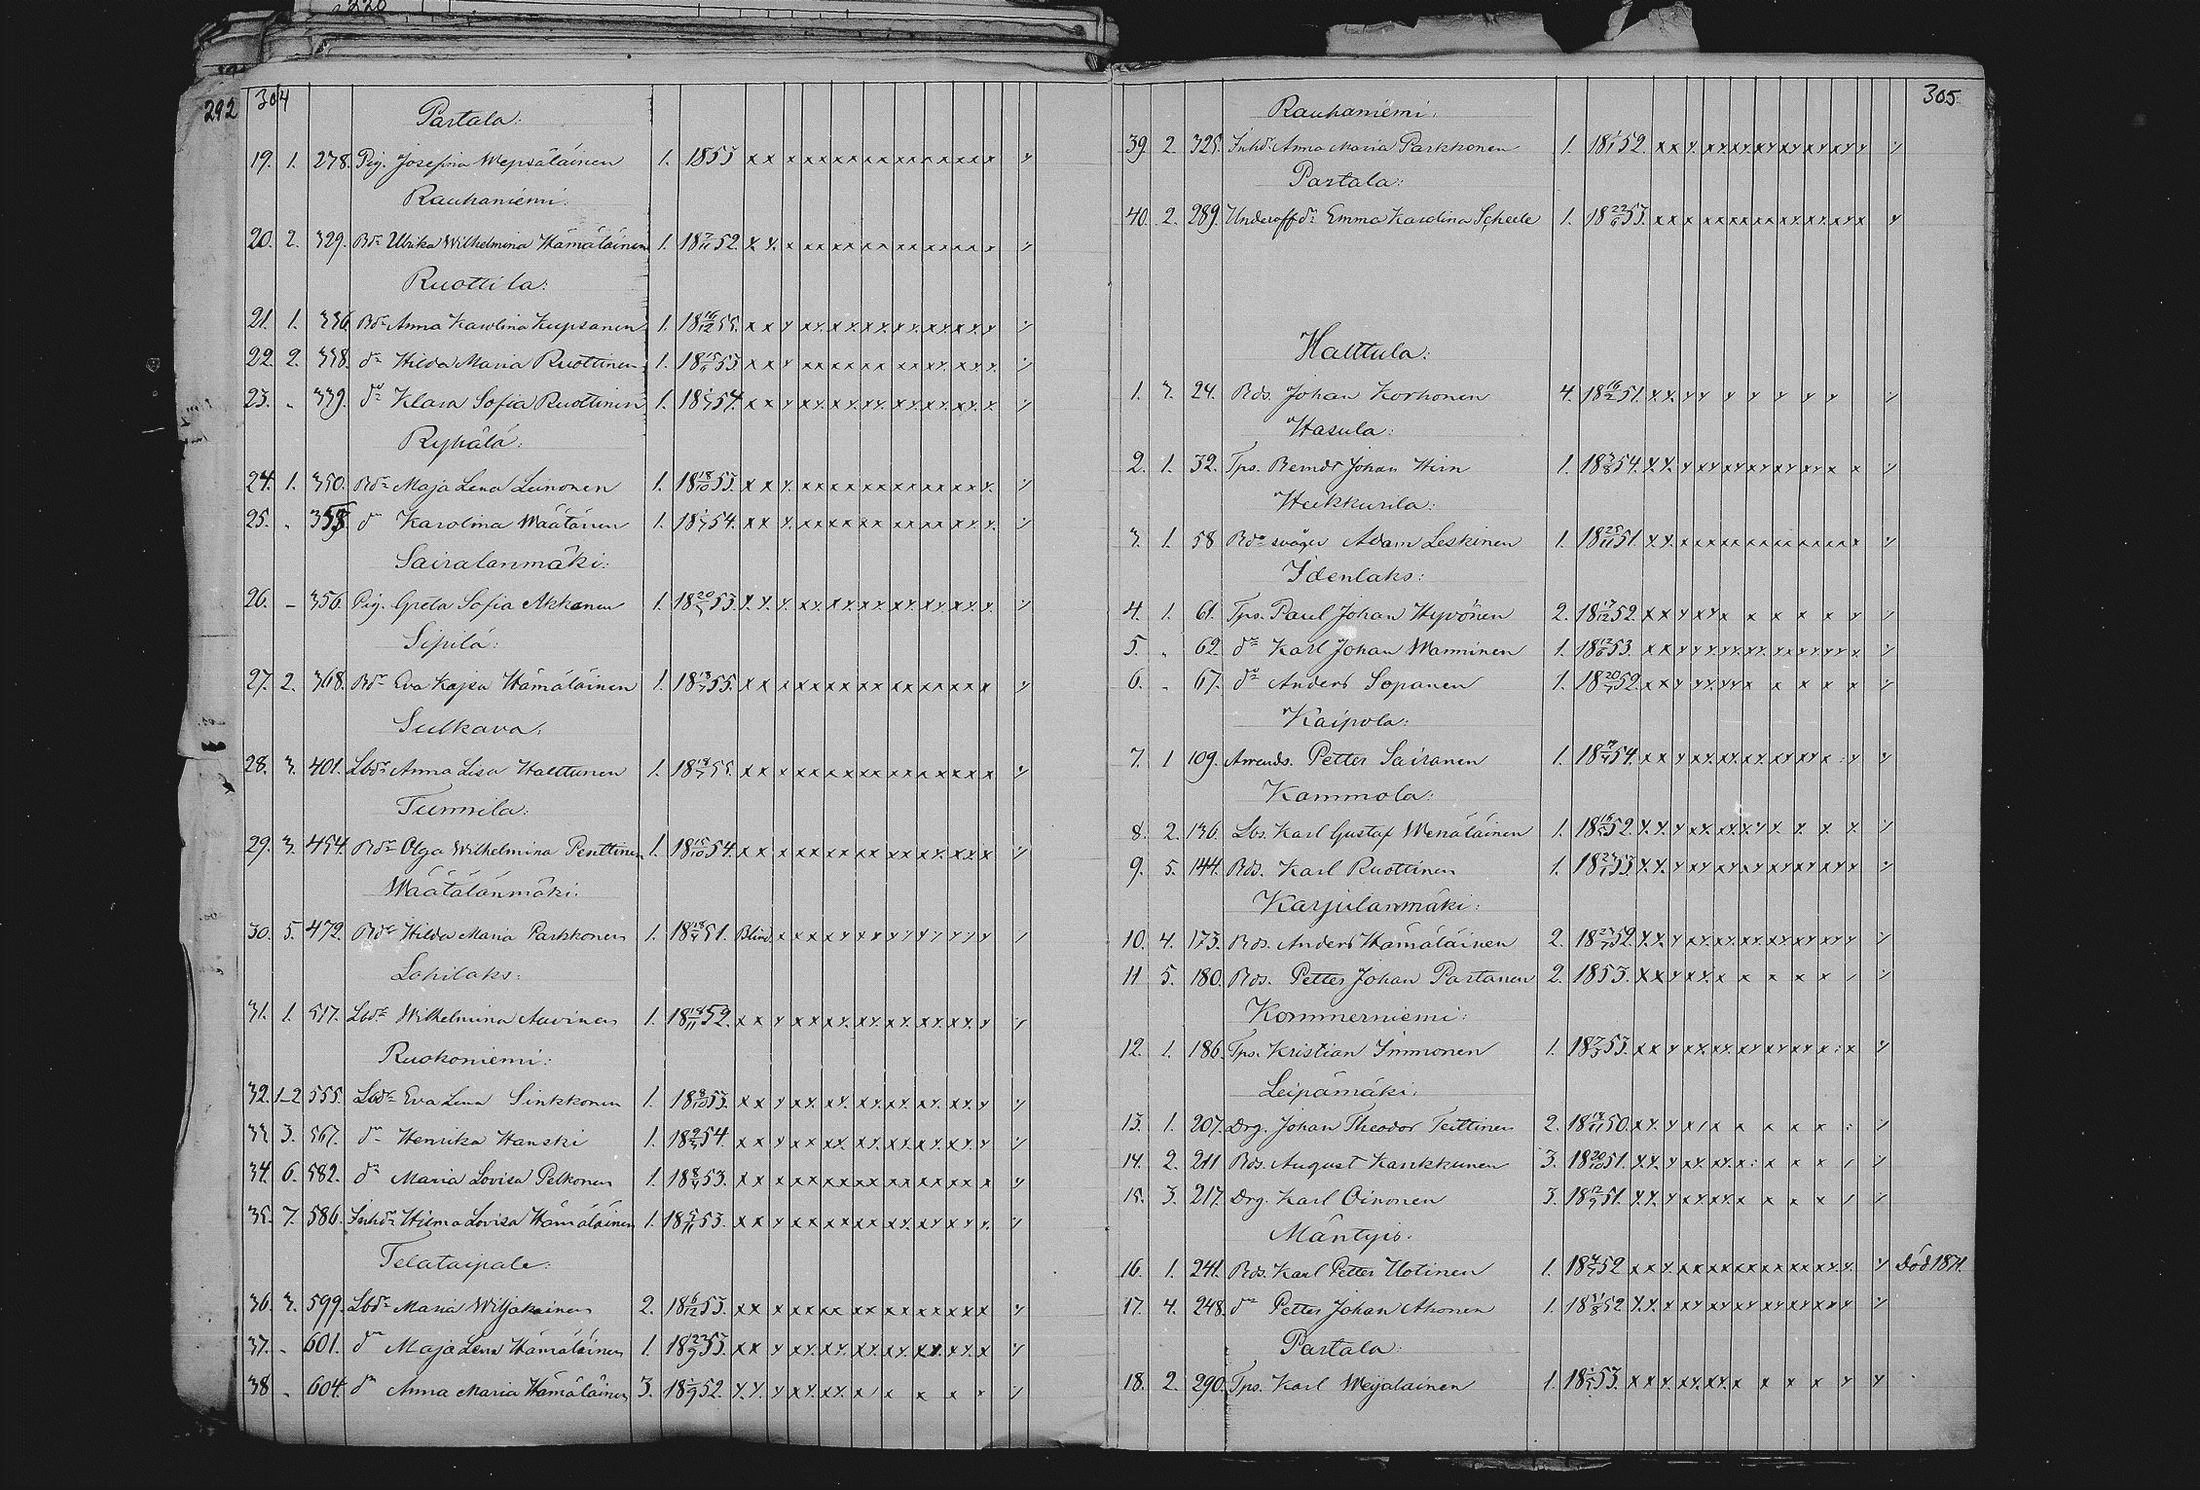 220
292
304
Partala:
19. 1. 278. Pig. Josefina Mepsäläinen 1. 1853 x x x x x x x x x x x x x x x
Rauhaniemi:
20. 2. 329. Bdr Ulrika Wilhelmina Hämäläinen 1. 18 52. x x. x x x x x x x x x x x x
Ruottila:
21. 1. 336 Bdr Anna Karolina Kupsanen 1. 18 16/12 55. x x x x x. x x. x x. x x. x x. x x. x
22. 2. 338. dr Hilda Maria Ruottinen 1. 18 53 x x x x x x x x x x x x x x x
23. - 339. dr Klara Sofia Ruottinen 1. 18 54. x x x x x x x x x x x x x x x
Ryhälä:
24. 1. 350. Bdr Maja Lena Leinonen 1. 18 18/10 53. x x x x x x x x x x x x x x x
25. - 353. dr Karolina Määtänen 1. 18 54. x x x x x x x x x x x x x x x
Sairalanmäki:
26. - 356. Pig. Greta Sofia Akkanen 1. 18 53. x x x x x x x x x x x x x x x
Sipilä:
27. 2. 368. Bdr Eva Kajsa Hämäläinen 1. 18 55. x x x x x x x x x x x x x x x
Sulkava:
28. 3. 401. Lbdr Anna Lisa Halttunen 1. 18 55. x x x x x x x x x x x x x x x
Tiemila:
29. 3. 454. Bdr Olga Wilhelmina Penttinen 1. 18 15/10 54. x x x x x x x x x x x x x x x
Määtälänmäki:
30. 5. 472. Bdr Hilda Maria Parkkonen 1. 18 51. Blind. x x x x x x x x x x x x
Lohilaks:
31. 1. 517. Lbdr Wilhelmina Auvinen 1. 18 18/11 52. x x x x x x x x x x x x x x x
Ruokoniemi:
32. 1-2 555. Lbdr Eva Lena Sinkkonen 1. 18 8/10 53. x x x x x x x x x x x x x x x
33 3. 567. dr Henrika Hanski 1. 18 54. x x x x x x x x x x x x x x x
34. 6. 582. dr Maria Lovisa Pelkonen 1. 18 53. x x x x x x x x x x x x x x x
35. 7. 586. Inhdr Hilma Lovisa Hämäläinen 1. 18 5/11 53. x x x x x x x x x x x x x x x
Telataipale:
36. 3. 599. Lbdr Maria Wiljakainen 2. 18 6/12 53. x x x x x x x x x x x x x x x
37. - 601. dr Maja Lena Hämäläinen 1. 18 23/9 53. x x x x x x x x x x x x x x x
38 - 604. dr Anna Maria Hämäläinen 3. 18 52. x x x x x x x x x x x
305
Rauhaniemi:
39. 2. 325. Inhdr Anna Maria Parkkonen 1. 18 1/1 52. x x x x x x x x x x x x x x x
Partala:
40. 2. 289. Underoffdr Emma Karolina Scheele 1. 18 22/6 53. x x x x x x x x x x x x x x x
Halttula:
1. 3. 24. Bds. Johan Korhonen 4. 18 16/2 51. x x x x x x x x x
Hasula:
2. 1. 32. Tps. Berndt Johan Hirn 1. 18 54. x x x x x x x x x x x x x x
Heikkurila:
3. 1. 58 Bds svåger Adam Leskinen 1. 18 25/11 51. x x x x x x x x x x x x x x x
Idenlaks:
4. 1. 61. Tps. Paul Johan Hyvönen 2. 18 17/12 52. x x x x x x x x x x x
5. - 62. dr Karl Johan Manninen 1. 18 12/6 53. x x x x x x x x x x x x x x x
6. - 67. dr Anders Sopanen 1. 18 52. x x x x x x x x x x x
Kaipola:
7. 1 109. Arrends. Petter Sairanen 1. 18 54. x x x x x x x x x x x x x x
Kammola:
8. 2. 136. Lbs. Karl Gustaf Menäläinen 1. 18 52. x x x x x x x x x x x x
9. 5. 144. Bds. Karl Ruottinen 1. 18 53 x x x x x x x x x x x x x x x
Karjulanmäki:
10. 4. 173. Bds. Anders Hämäläinen 2. 18 52. x x x x x x x x x x x x x x x
11 5. 180. Bds. Petter Johan Partanen 2. 1853. x x x x x x x x x x
Kommerniemi:
12. 1. 186. Tps. Kristian Immonen 1. 18 53. x x x x x x x x x x x x x x
Leipämäki:
13. 1. 207. Drg. Johan Theodor Teittinen 2. 18 50. x x x x x x x x x x
14. 2. 211 Bds. August Karkkunen 3. 18 20/10 51. x x x x x x x x x x x
15. 3. 217. Drg. Karl Oinonen 3. 18 12/9 51. x x x x x x x x x x x
Mäntyis:
16. 1. 241. Bds. Karl Petter Uotinen 1. 18 52 x x x x x x x x x x x x x x x Död 1871.
17. 4. 248. dr Petter Johan Ahonen 1. 18 31/8 52. x x x x x x x x x x x x x x x
Partala:
18. 2. 290. Tps. Karl Weijalainen 1. 18 53. x x x x x x x x x x x x